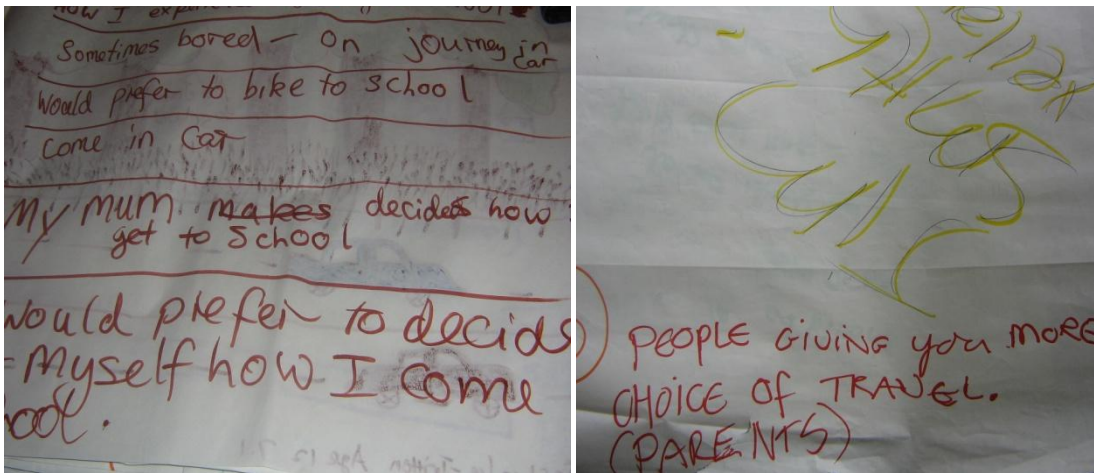 how I
Sometimes bored - on journey in car
Would prefer to bike to School
come in Car
My mum makes decides how
get to School
would prefer to decide
- Myself how I come
PEOPLE GIVING you MORE
CHOICE OF TRAVEL.
(PARENTS)